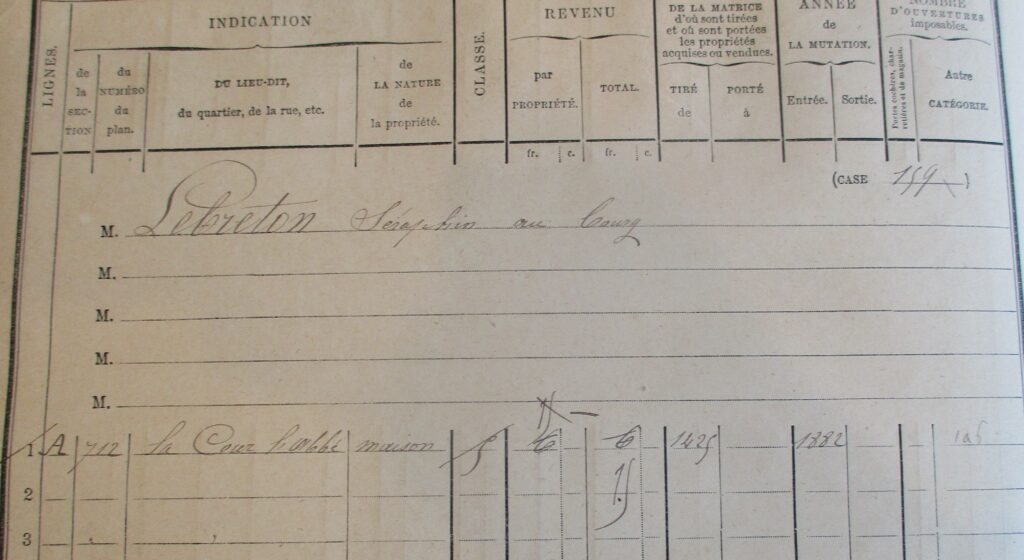 INDICATION
REVENU
DE LA MATRICE
d'où sont tirées
et où sont portées
les propriétés
acquises ou vendues.
ANNÉE
de
LA MUTATION.
NOMBRE
D'OUVERTURES
imposables.
LIGNES.
de
la
SEC-
TION
du
NUMÉRO
du
plan.
DU LIEU-DIT,
du quartier, de la rue, etc.
de
LA NATURE
de
la propriété.
CLASSE.
par
PROPRIÉTÉ.
TOTAL.
TIRÉ
de
PORTÉ
à
Entrée.
Sortie.
Portes cochères, char-
retières et de magasin.
Autre
CATÉGORIE.
fr. c. fr. c.
(CASE 159 )
M. Lebreton Séraphin au bourg
M.
M.
M.
M.
1 A 712 la Cour maison 5 6 6 1425 1882
2
15
3